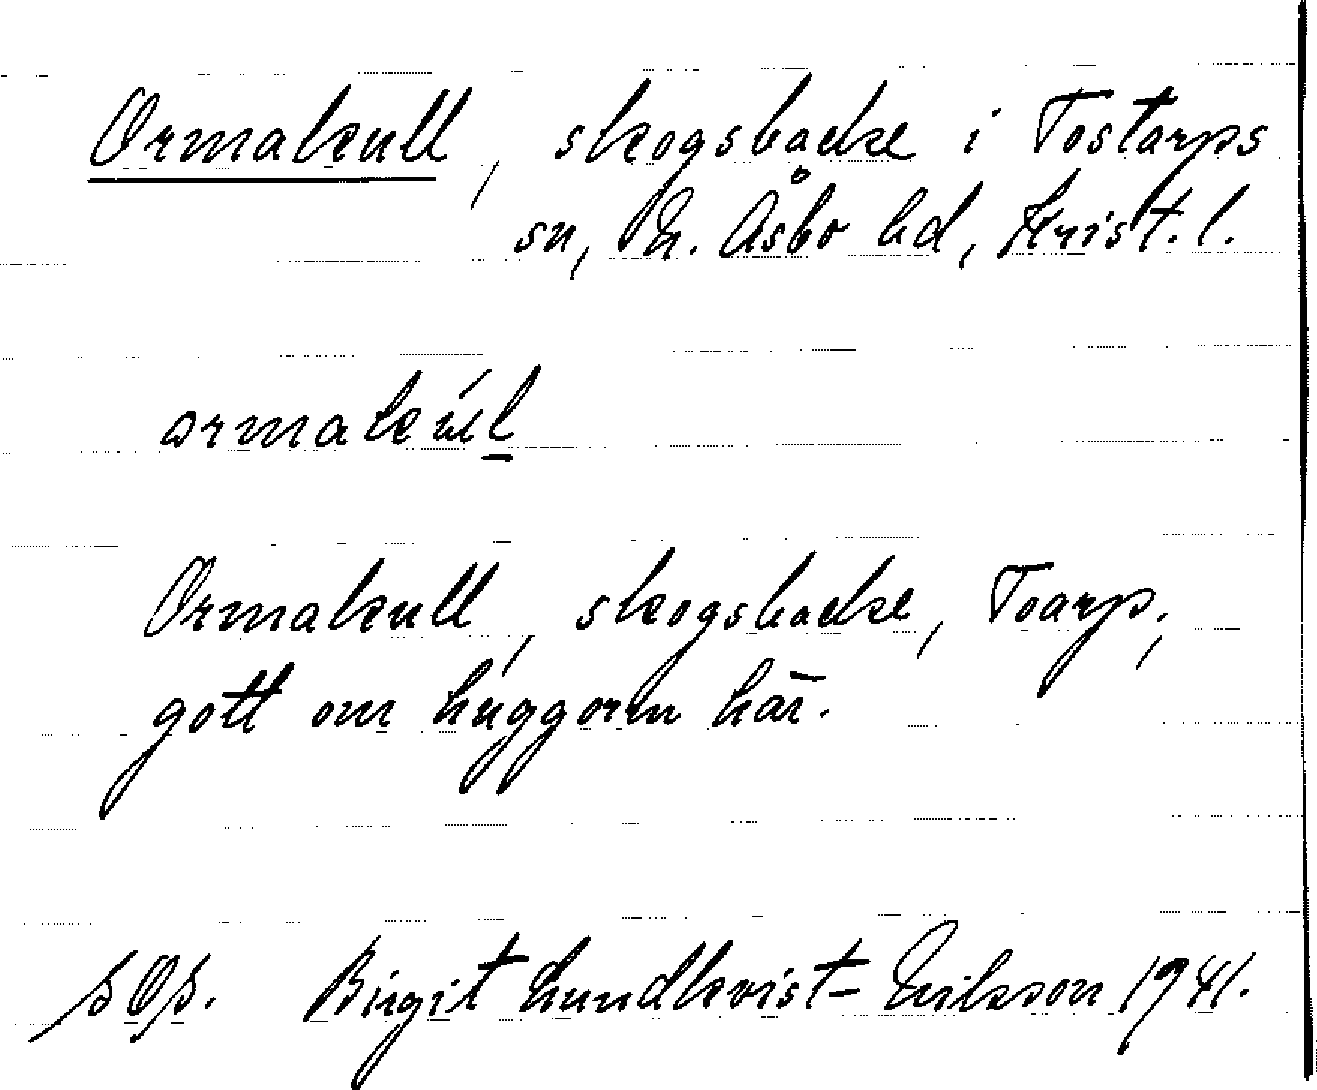 Ormakull, skogsbacke i Tostarps
sn, N. Åsbo hd, Krist. l.
ormakúl
Ormakull, skogsbacke, Toarp;
gott om huggorm här.
Birgit Lundkvist-Erilsson 1941.